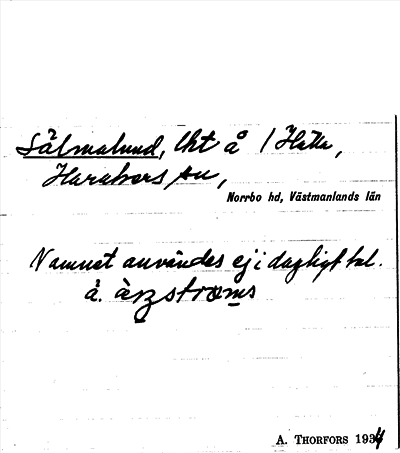 Sälmalund, lht å 1 Hälla,
Haraker sn,
Norrbo hd, Västmanlands län
Namnet användes ej i dagligt tal.
å.
A. THORFORS 1934